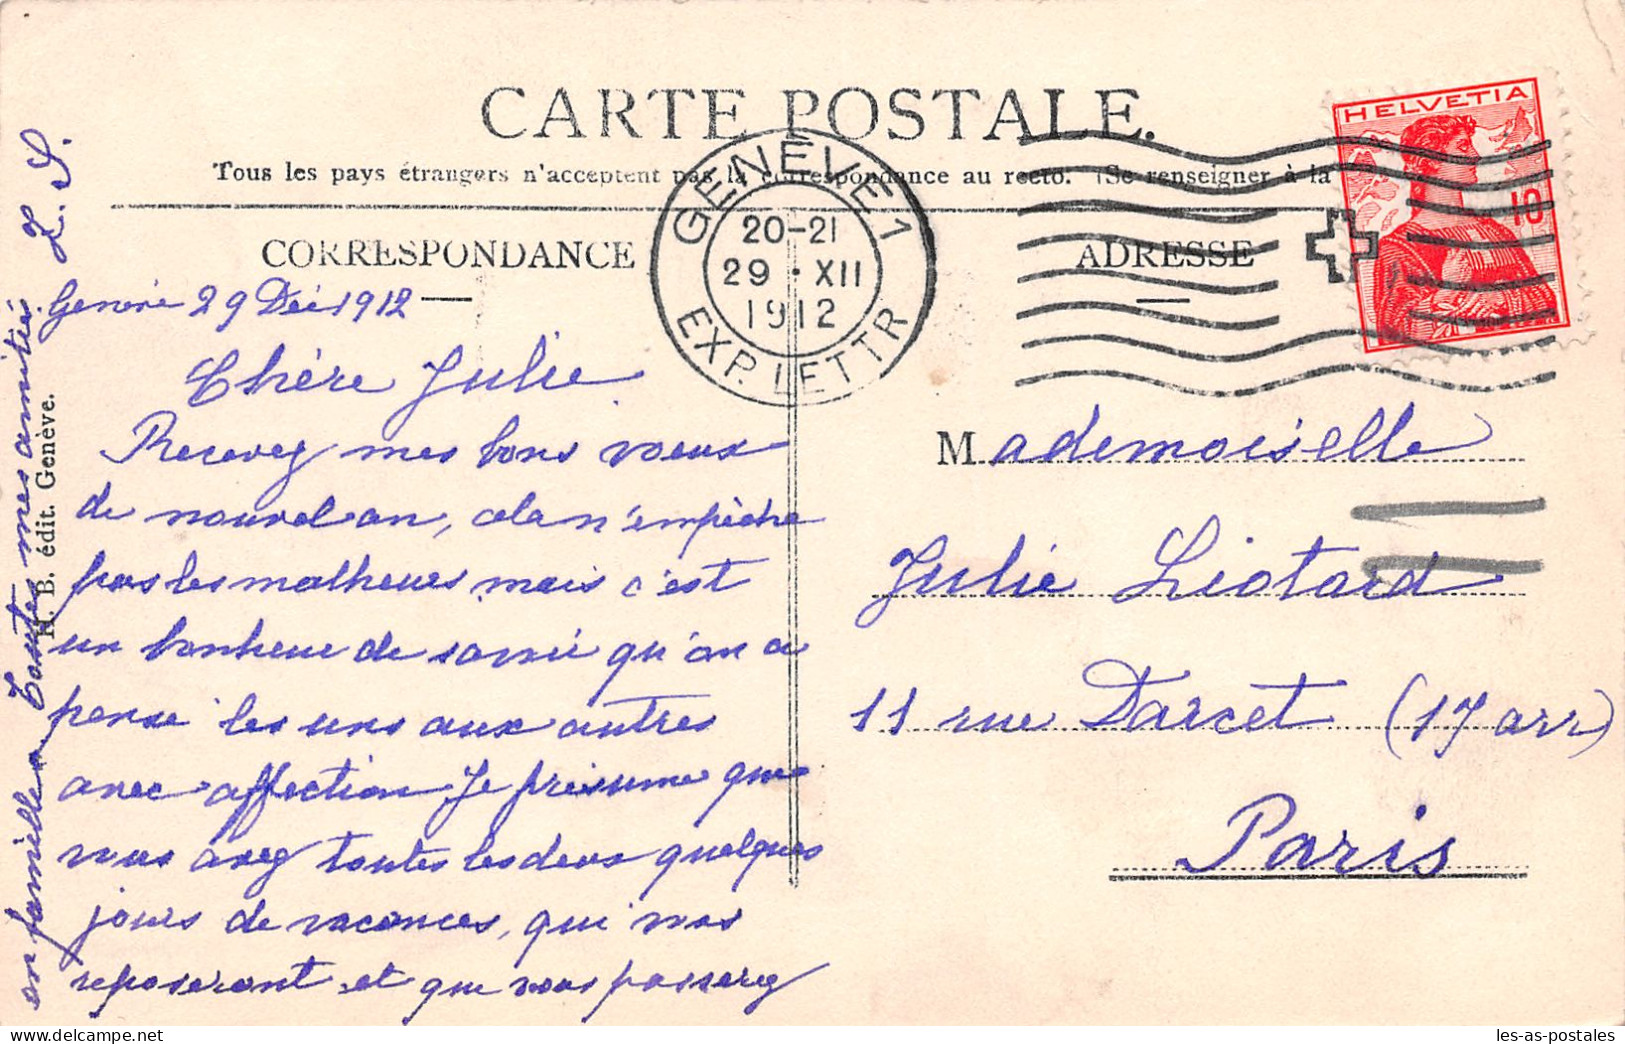 CARTE POSTALE.
Tous les pays étrangers n'acceptent pas la correspondance au recto. (Se renseigner à la
CORRESPONDANCE
ADRESSE
GENÈVE 1
20-21
29 • XII
1912
EXP. LETTR
HELVETIA
10
Genève 29 Déc 1912
Chère Julie
Recevez mes bons vœux
de nouvel an, cela n'empêche
pas les malheurs mais c'est
un bonheur de savoir qu'on a
pense les uns aux autres
avec affection Je présume que
vous avez toutes les deux quelques
jours de vacances, qui vous
reposeront et que vous passerez
en famille Toutes mes amitiés L. S.
H. B. édit. Genève.
Mademoiselle
Julie Liotard
11 rue Darcet (17 arr)
Paris
les-as-postales